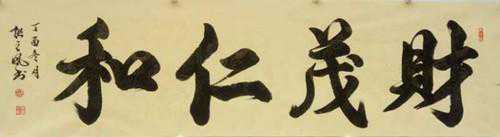 財茂仁和
丁酉冬月